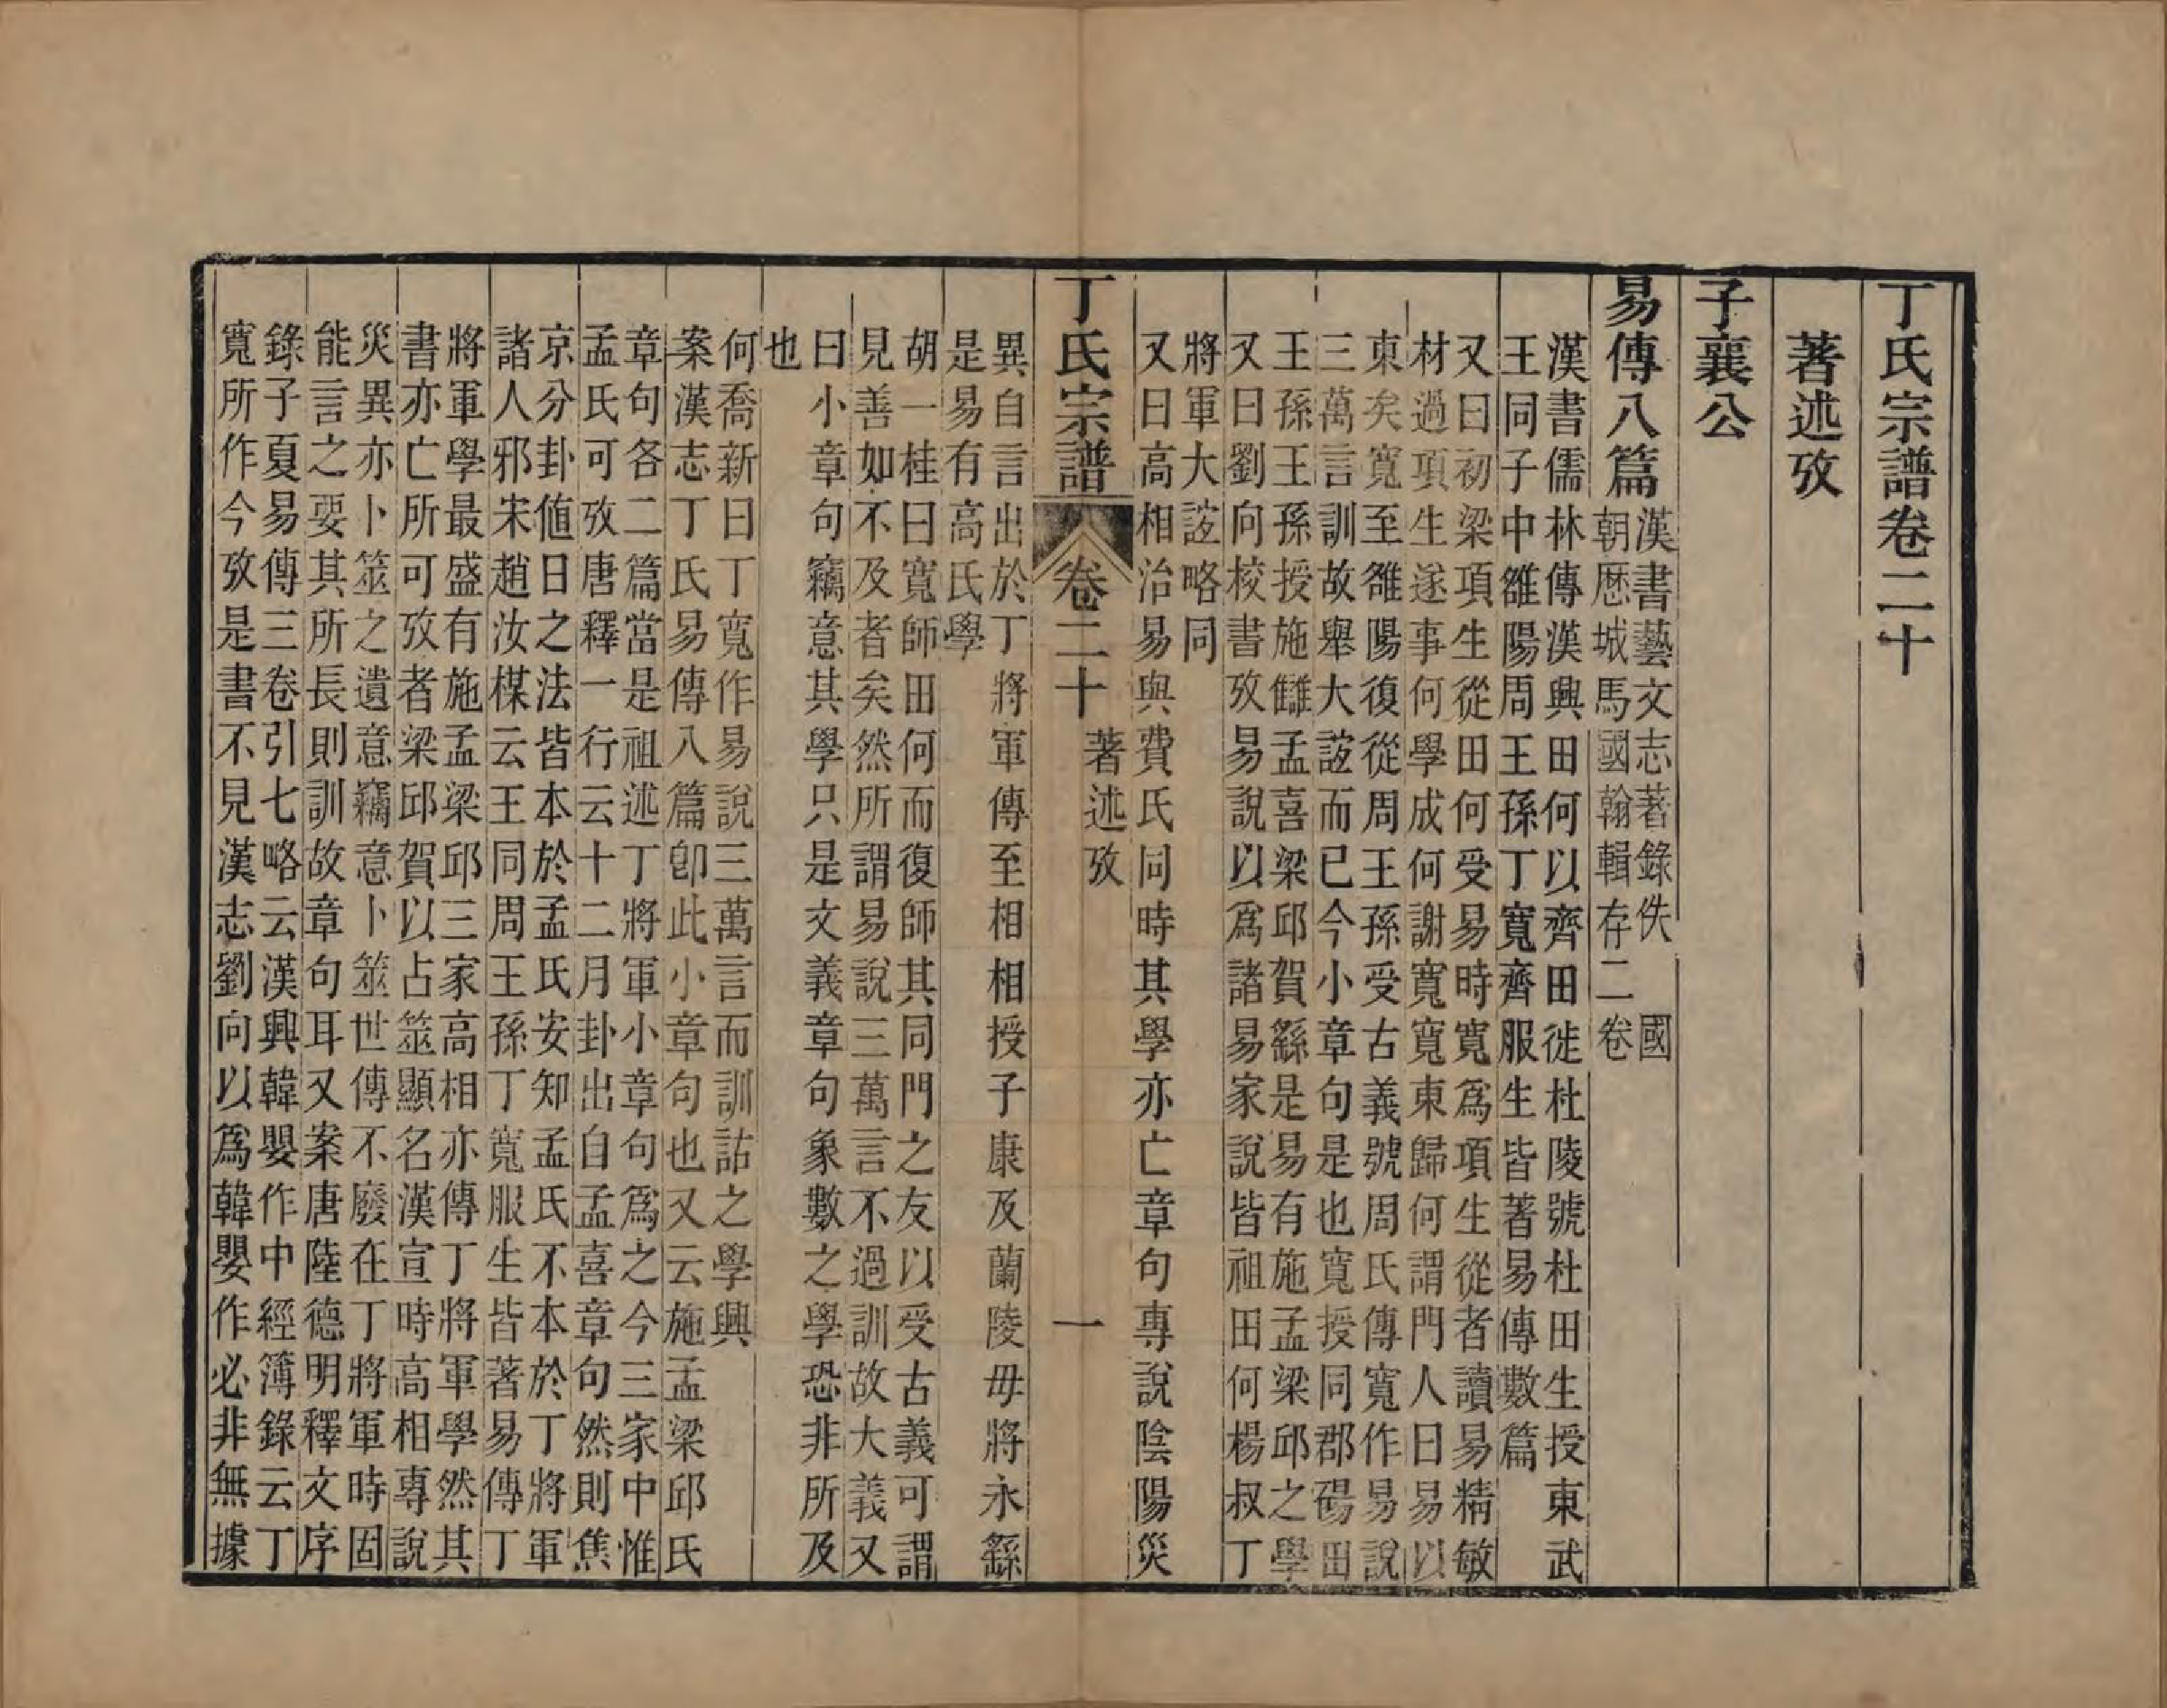 丁氏宗譜卷二十
著述攷
子襄公
易傳八篇
漢書藝文志著錄佚 國
朝歷城馬國翰輯存二卷
漢書儒林傳漢興田何以齊田徙杜陵號杜田生授東武
王同子中雒陽周王孫丁寬齊服生皆著易傳數篇
又曰初梁項生從田何受易時寬爲項生從者讀易精敏
材過項生遂事何學成何謝寬寬東歸何謂門人曰易以
東矣寬至雒陽復從周王孫受古義號周氏傳寬作易說
三萬言訓故舉大誼而已今小章句是也寬授同郡碭田
王孫王孫授施讎孟喜梁邱賀繇是易有施孟梁邱之學
又曰劉向校書攷易說以爲諸易家說皆祖田何楊叔丁
將軍大誼略同
又曰高相治易與費氏同時其學亦亡章句專說陰陽災
丁氏宗譜 卷二十 著述攷 一
異自言出於丁將軍傳至相相授子康及蘭陵毋將永繇
是易有高氏學
胡一桂曰寬師田何而復師其同門之友以受古義可謂
見善如不及者矣然所謂易說三萬言不過訓故大義又
曰小章句竊意其學只是文義章句象數之學恐非所及
也
何喬新曰丁寬作易說三萬言而訓詁之學興
案漢志丁氏易傳八篇卽此小章句也又云施孟梁邱氏
章句各二篇當是祖述丁將軍小章句爲之今三家中惟
孟氏可攷唐釋一行云十二月卦出自孟喜章句然則焦
京分卦値日之法皆本於孟氏安知孟氏不本於丁將軍
諸人邪宋趙汝楳云王同周王孫丁寬服生皆著易傳丁
將軍學最盛有施孟梁邱三家高相亦傳丁將軍學然其
書亦亡所可攷者梁邱賀以占筮顯名漢宣時高相專說
災異亦卜筮之遺意竊意卜筮世傳不廢在丁將軍時固
能言之要其所長則訓故章句耳又案唐陸德明釋文序
錄子夏易傳三卷引七略云漢興韓嬰作中經簿錄云丁
寬所作今攷是書不見漢志劉向以爲韓嬰作必非無據